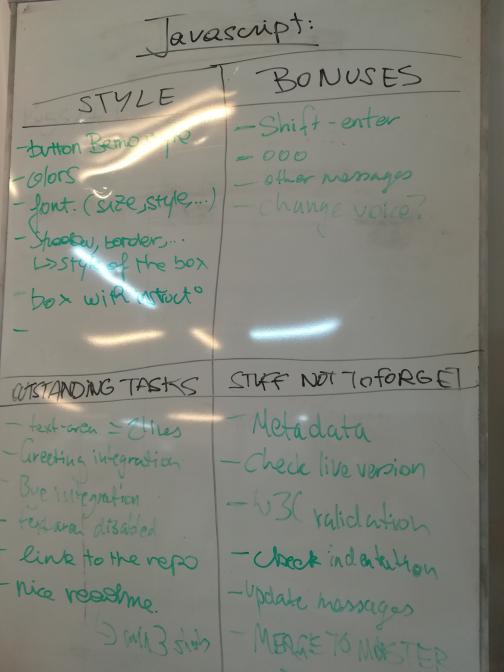 Javascript:
STYLE
- button
- colors
- font. (size, style, ...)
- Shadow, border, ...
↳ style of the box
- box with
-
BONUSES
- Shift-enter
- ooo
- other messages
- Change voice?
OUTSTANDING TASKS
- text-area = lines
- Greeting integration
- Bye integration
- text area disabled
- link to the repo
- nice readme.
STUFF NOT To FORGET
- Metadata
- Check live version
- W3C validation
- check indentation
- update messages
- MERGE TO MASTER